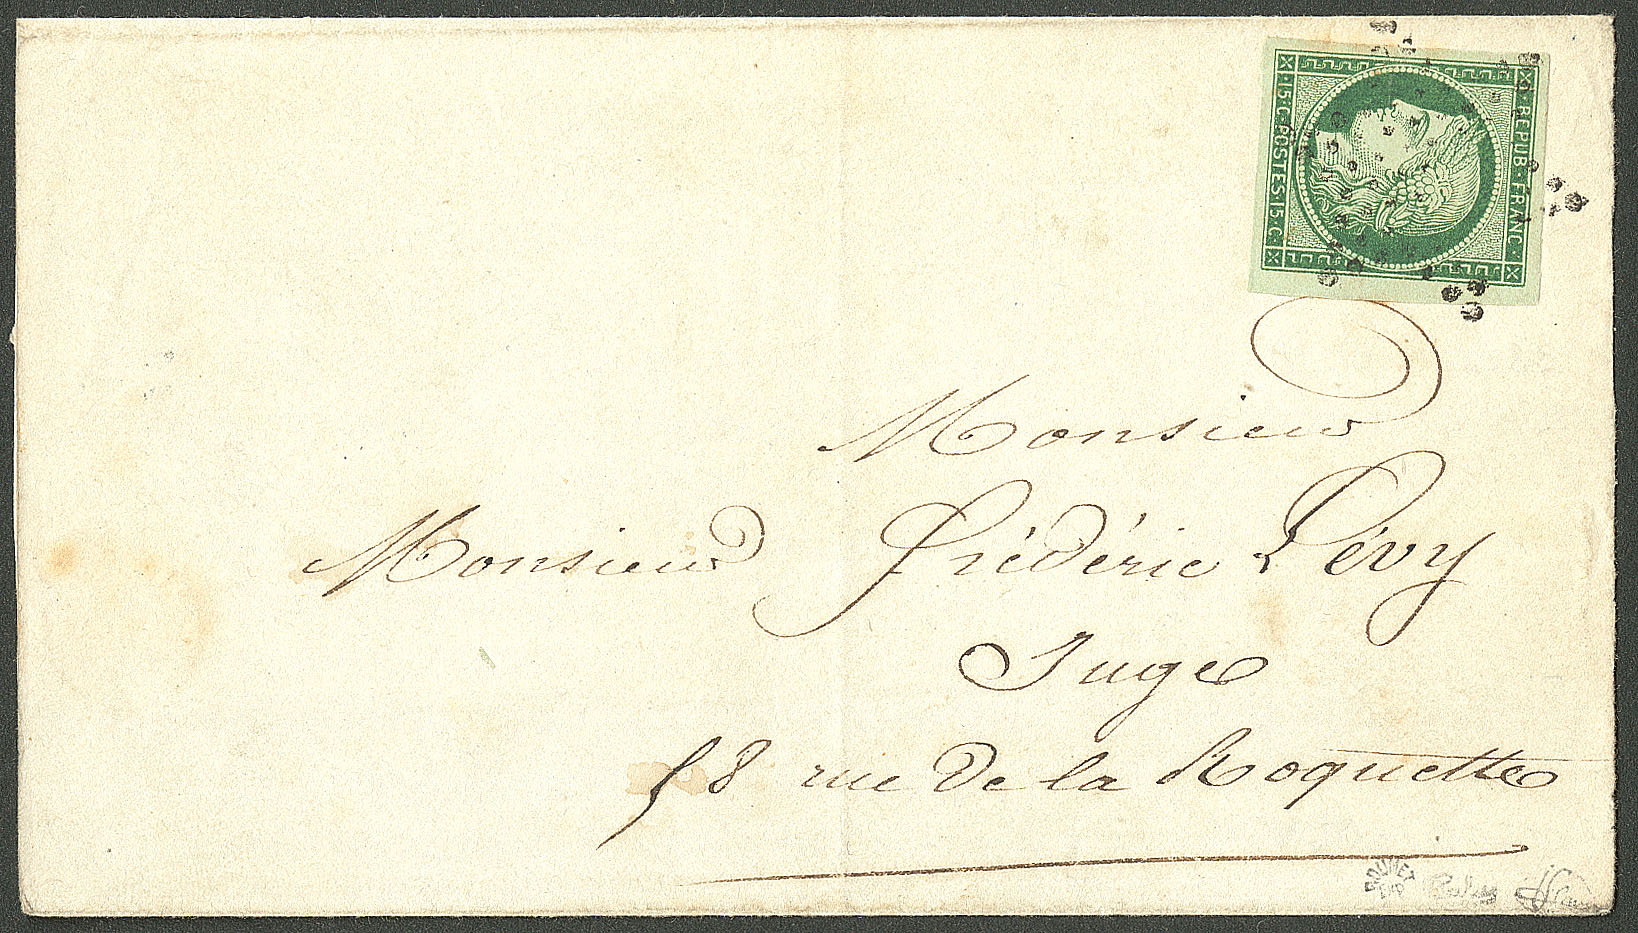 REPUB·FRANC·
·15·C·POSTES·15·C·
Monsieur
Monsieur Frédéric Lévy
Juge
58 rue de la Roquette
ROUMET